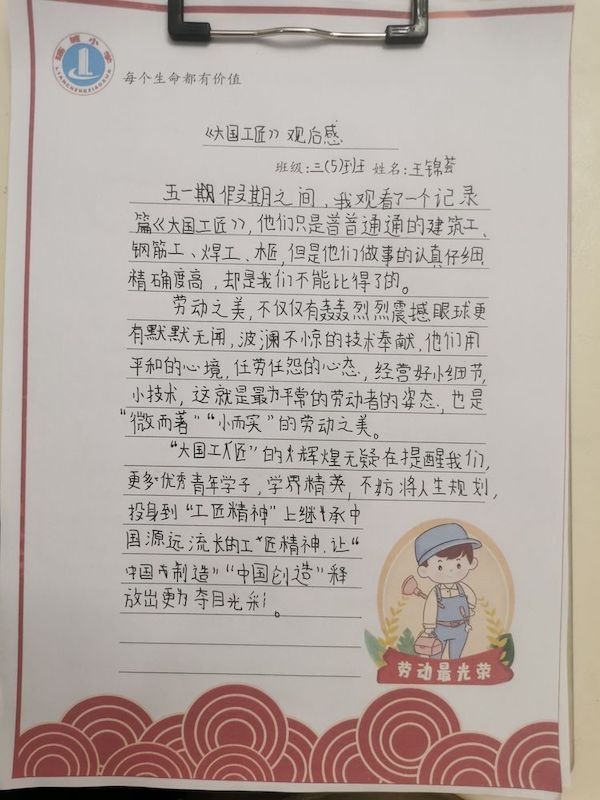 每个生命都有价值
《大国工匠》观后感
班级:三(5)班 姓名:王锦荟
五一期假期之间，我观看了一个记录
篇《大国工匠》，他们只是普普通通的建筑工、
钢筋工、焊工、木匠，但是他们做事的认真仔细
精确度高，却是我们不能比得了的。
劳动之美，不仅仅有轰轰烈烈震撼眼球更
有默默无闻，波澜不惊的技术奉献，他们用
平和的心境，任劳任怨的心态，经营好小细节，
小技术，这就是最为平常的劳动者的姿态，也是
“微而著”“小而实”的劳动之美。
“大国工匠”的辉煌无疑在提醒我们，
更多优秀青年学子，学界精英，不妨将人生规划，
投身到“工匠精神”上继承中
国源远流长的工匠精神，让“
中国制造”“中国创造”释
放出更为夺目光彩。
劳动最光荣